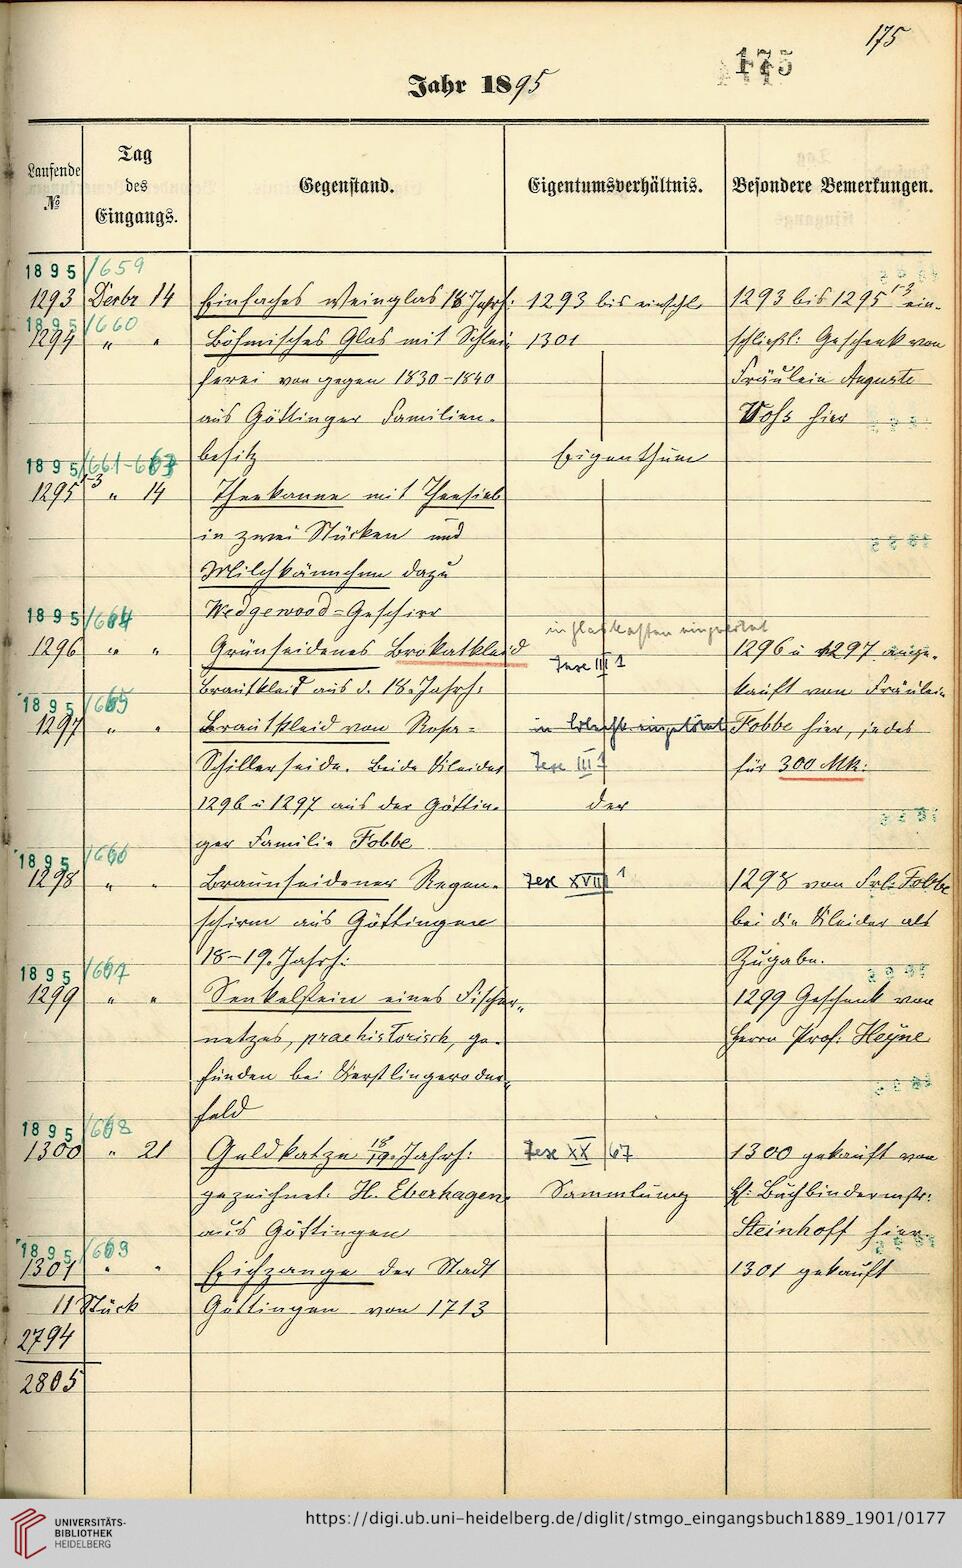 175
175
Jahr 1895
Laufende №
Tag des Eingangs.
Gegenstand.
Eigentumsverhältnis.
Besondere Bemerkungen.
1895/659
1293 Decbr 14 Einfaches Weinglas 18 Jahrh: 1293 bis einschl. 1293 bis 1295 1-3 ein-
1895/660
1294 " " Böhmisches Glas mit Schlei- 1301 schließl: Geschenk von
ferei von gegen 1830-1840 Fräulein Auguste
aus Göttinger Familien- Voss hier
1895/661-663 besitz Eigenthum
1295 1-3 " 14 Theekanne mit Theesieb
in zwei Stücken und
Milchkännchen dazu
1895/664 Wedgewood=Geschirr
in Glaskasten
1296 " " Grünseidenes Brokatkleid Inse III 1 1296 u 1297 ange-
1895/665 Brautkleid aus d. 18. Jahrh: kauft von Fräulein
1297 " " Brautkleid von Rosa= Fobbe hier, jedes
Schillerseide. Beide Kleider III 1 für 300 Mk:
1296 u 1297 aus der Göttin- der
ger Familie Fobbe
1895/666
1298 " " Braunseidener Regen- XVIII 1 1298 von Frl: Fobbe
schirm aus Göttingen bei die Kleider als
18-19. Jahrh: Zugabe.
1895/667
1299 " " Senkelstein eines Fischer- 1299 Geschenk von
netzes, praehistorisch, ge- Herrn Prof: Heyne
funden bei Gerstlingeroder-
feld
1895/668
1300 " 21 Geldkatze 18/19. Jahrh: XX 67 1300 gekauft von
gezeichnet: H. Eberhagen. Sammlung H: Buchbindermstr:
aus Göttingen Steinhoff hier.
1895/669
1301 " " Eichzange der Stadt 1301 gekauft
11 Stück Göttingen von 1713
2794
2805
UNIVERSITÄTS-
BIBLIOTHEK
HEIDELBERG
https://digi.ub.uni-heidelberg.de/diglit/stmgo_eingangsbuch1889_1901/0177